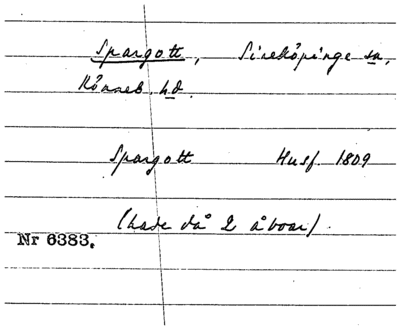 Spargott, Sireköpinge sn,
Rönneb. hd.
Spargott Husf. 1809
(hade då 2 åboar)
Nr 6383.